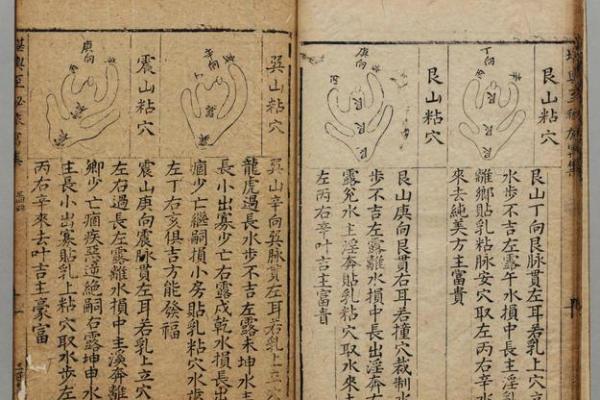 艮山粘穴
丁向
艮
艮
艮
艮山丁向艮脉貫左耳若乳上穴
水步不吉左露午水損中長主淫乱
離鄉貼乳粘脉安穴取左丙右辛水
來去純美方主富貴
艮山粘穴
庚向
艮
艮
艮
艮山庚向艮貫右耳若撞穴裁制水
步不吉左露離水損中長出淫奔右
露兌水主淫奔貼乳粘穴取水來去
左丙右辛叶吉主富貴
巽山粘穴
辛向
巽山辛向巽脉貫左耳若乳上立穴
龍虎過長水步不吉左露未坤水主
長小出寡少亡右露戌乾水損長出
痼少亡繼嗣損小房貼乳粘穴水步
左丁右亥俱吉方能發福
震山粘穴
庚向
震山庚向震脉貫左耳若乳上立穴
左右過長左露離水損中主溪奔離
鄉少亡痼疾惡逆絶嗣右露坤申水
主長小出寡貼乳上粘穴取水步左
丙右辛來去叶吉主豪富